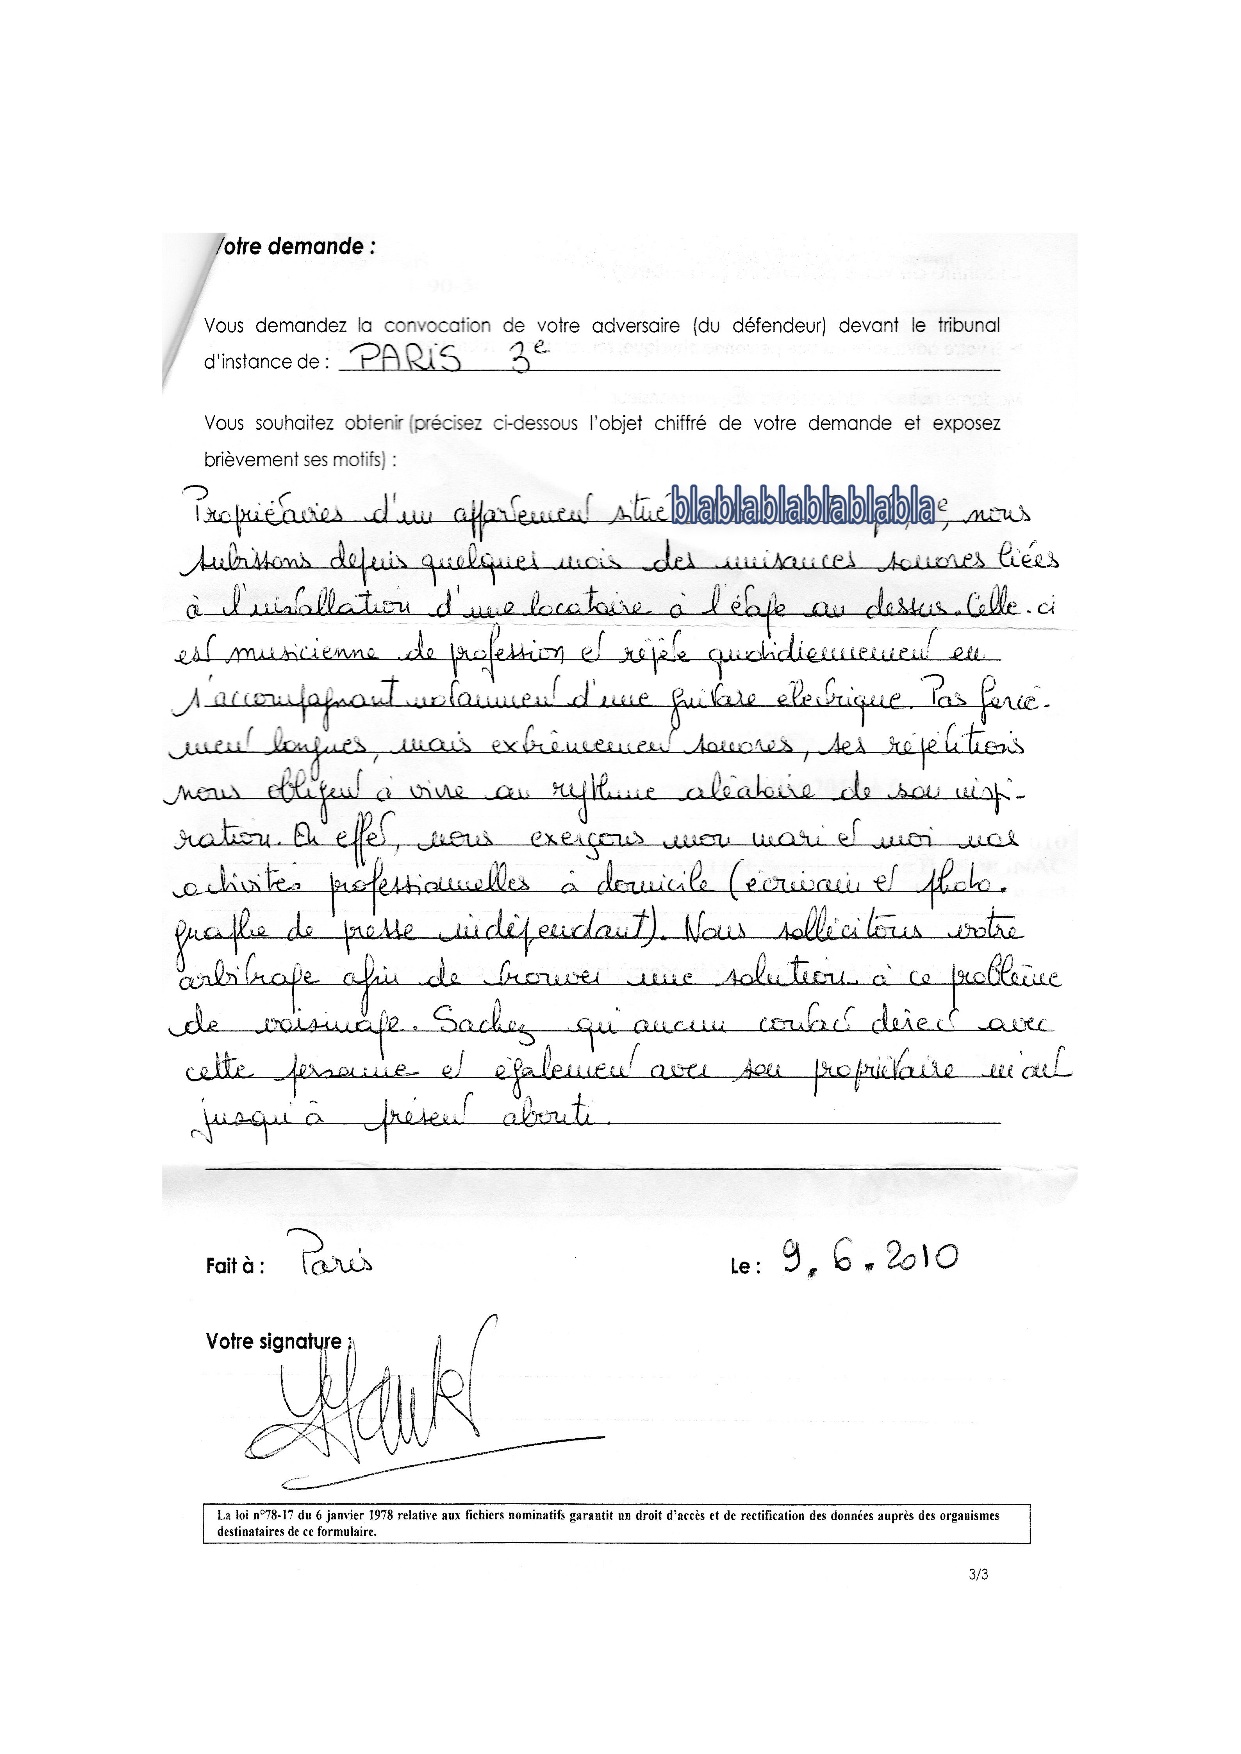 Votre demande :
Vous demandez la convocation de votre adversaire (du défendeur) devant le tribunal
d'instance de : PARIS 3e
Vous souhaitez obtenir (précisez ci-dessous l'objet chiffré de votre demande et exposez
brièvement ses motifs) :
Propriétaires d'un appartement situé blablablablablabla e, nous
subissons depuis quelques mois des nuisances sonores liées
à l'installation d'une locataire à l'étage au dessus. Celle-ci
est musicienne de profession et répète quotidiennement en
s'accompagnant notamment d'une guitare électrique. Pas forcé-
ment longues, mais extrêmement sonores, ses répétitions
nous obligent à vivre au rythme aléatoire de son inspi-
ration. En effet, nous exerçons mon mari et moi nos
activités professionnelles à domicile (écrivain et photo-
graphe de presse indépendant). Nous sollicitons votre
arbitrage afin de trouver une solution à ce problème
de voisinage. Sachez qu'aucun contact direct avec
cette personne et également avec son propriétaire n'ont
jusqu'à présent abouti.
Fait à : Paris Le : 9.6.2010
Votre signature :
La loi n°78-17 du 6 janvier 1978 relative aux fichiers nominatifs garantit un droit d'accès et de rectification des données auprès des organismes
destinataires de ce formulaire.
3/3